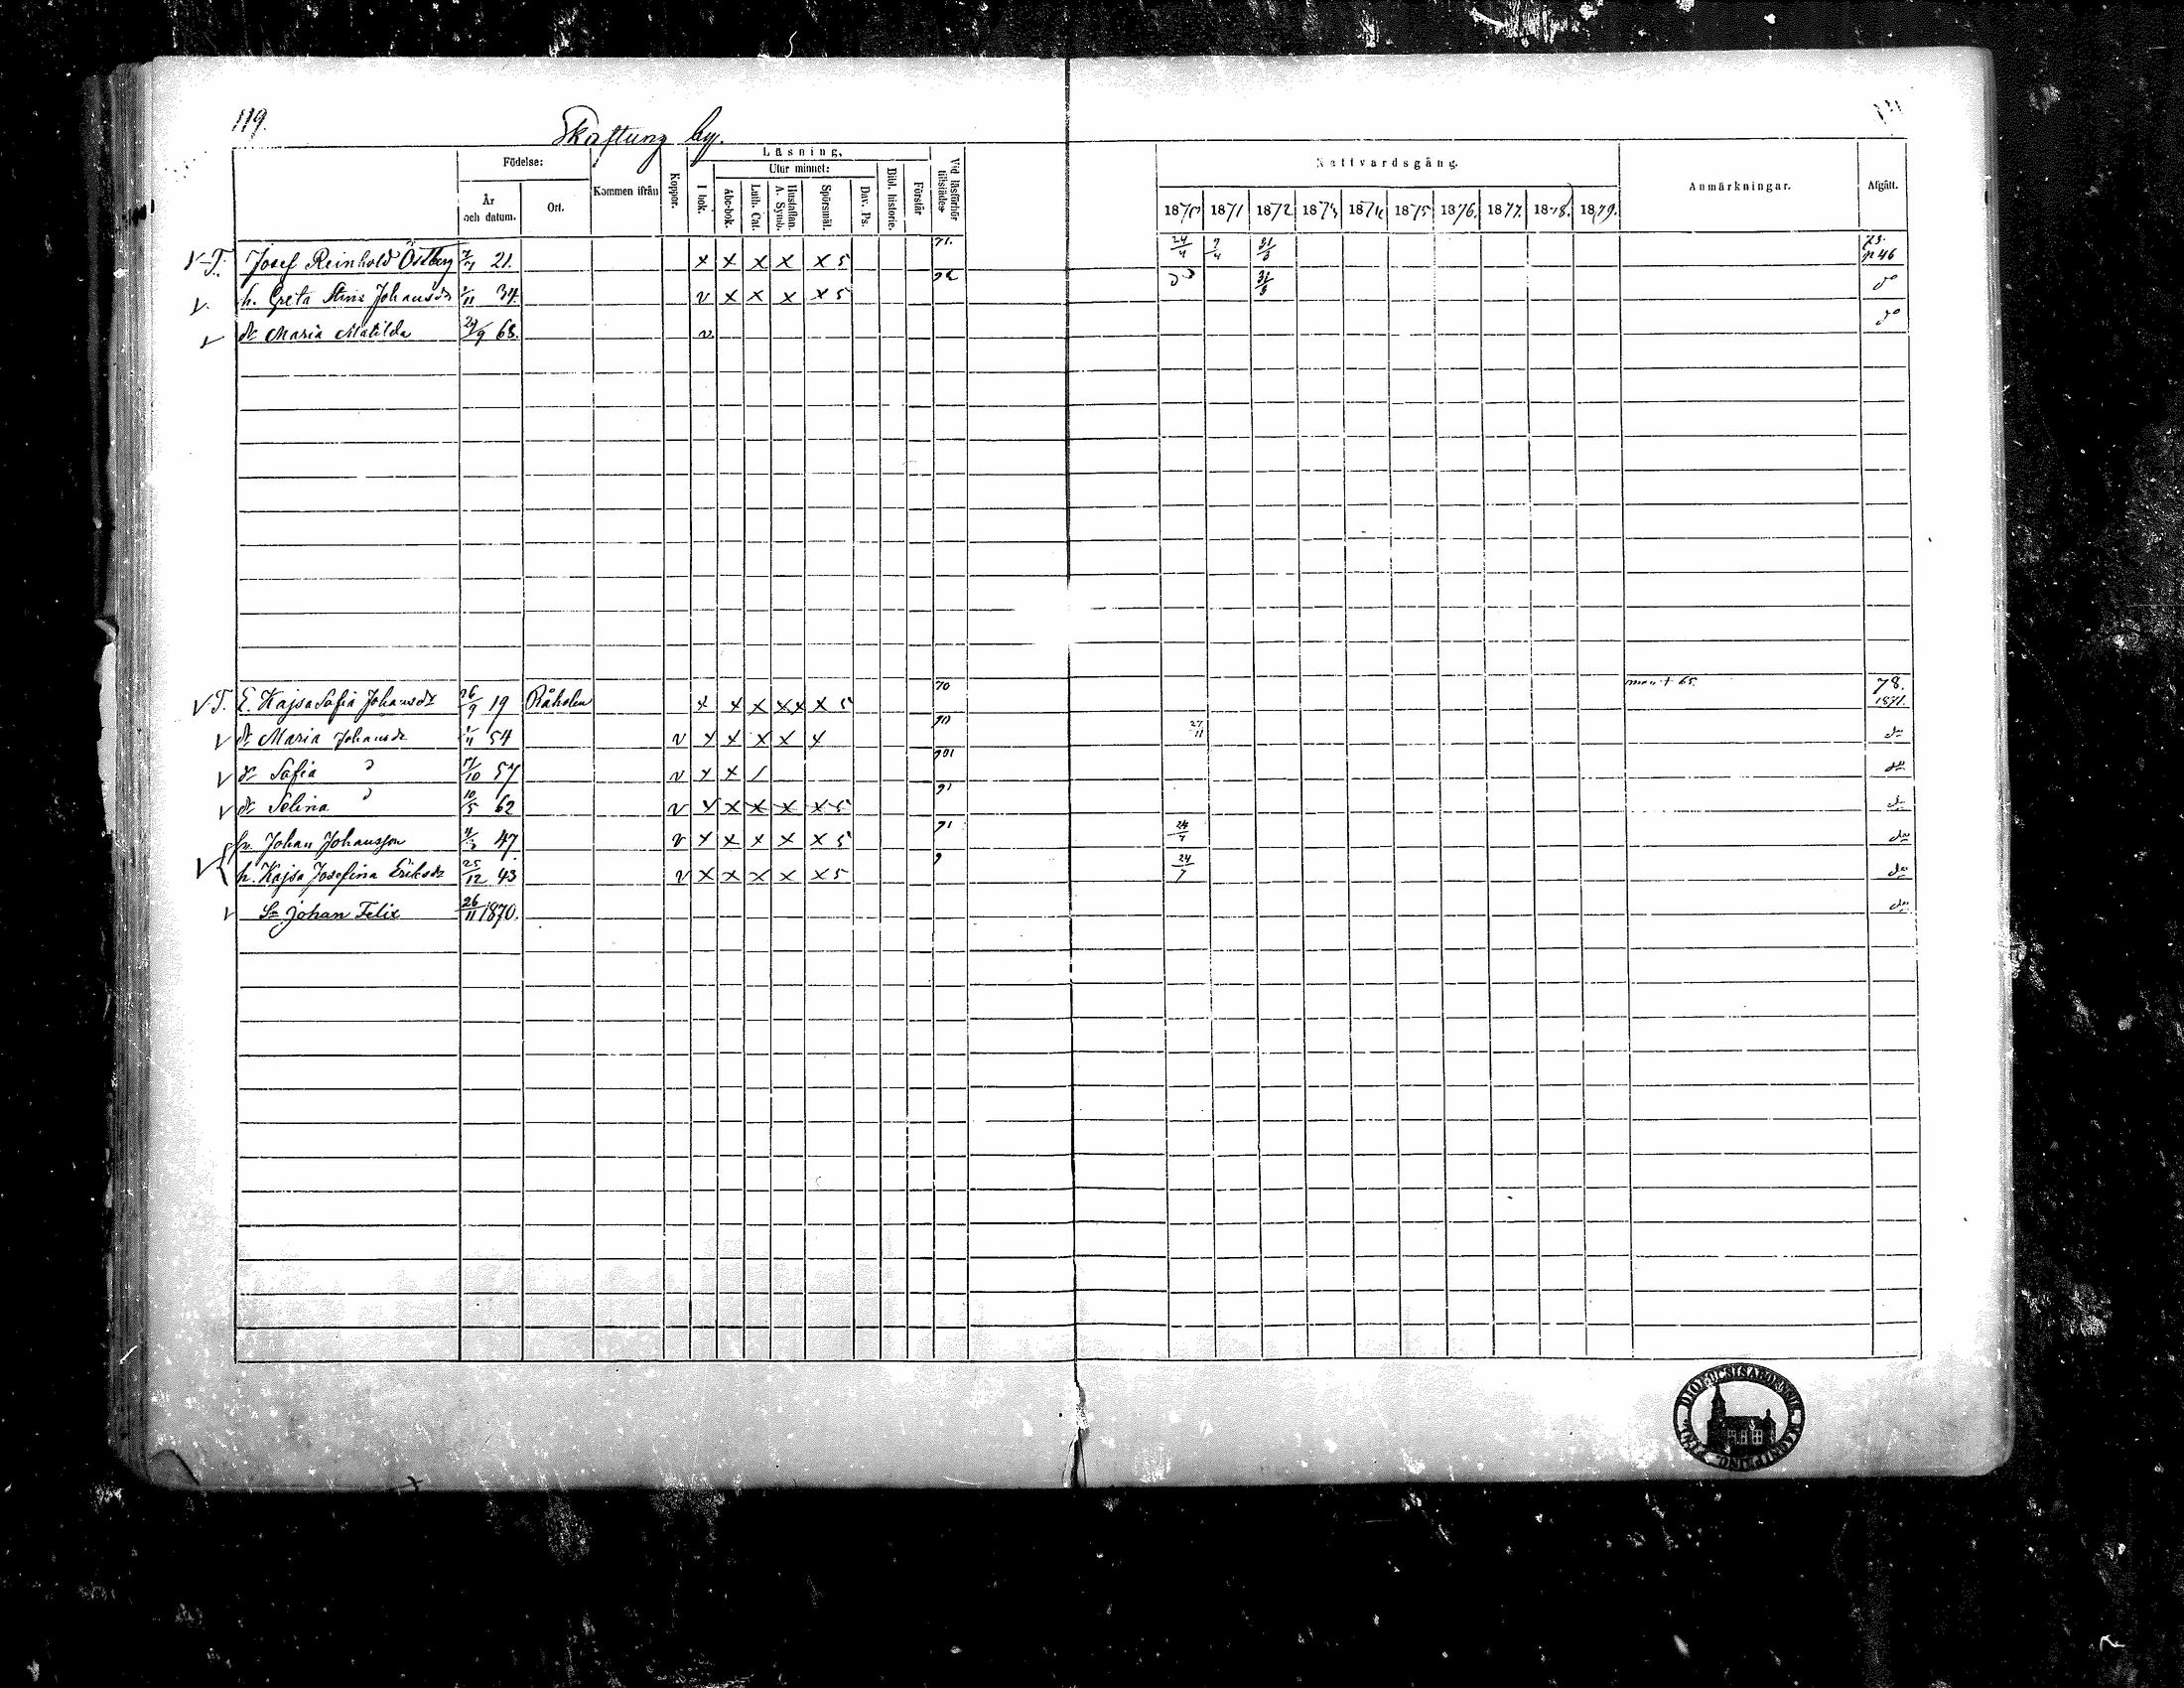 119.
Skaftung by.
Födelse:
År och datum.
Ort.
Kommen ifrån
Koppor.
Läsning,
I bok.
Utur minnet:
Abc-bok.
Luth. Cat.
Hustaflan. A. Symb.
Spörsmål.
Dav. Ps.
Bibl. historie.
Förstår
Vid läsförhör tillstädes
Nattvardsgång.
1870 1871 1872 1873 1874 1875 1876. 1877. 1878. 1879.
Anmärkningar.
Afgått.
V T. Josef Reinhold Östberg 21. x x x x x 5 71. 24/4 31/3 73. p 46
v h. Greta Stina Johansdr 34 v x x x x 5 31/3 do
v dr Maria Matilda 68. v do
V T. E. Kajsa Sofia Johansdr 26/9 19 Råholm x x x x x x 5 70 man + 65. 78. 1871.
v dr Maria Johansdr 54 v x x x x x 27/11 do
v dr Sofia 57 v x x / do
v dr Selina 10/5 62 v x x x x x 5 71 do
hr. Johan Johansson 47 v x x x x x 5 71 24/7 do
V h. Kajsa Josefina Eriksdr 25/12 43 v x x x x x 5 24/7 do
v Sn Johan Felix 26/11 1870. do